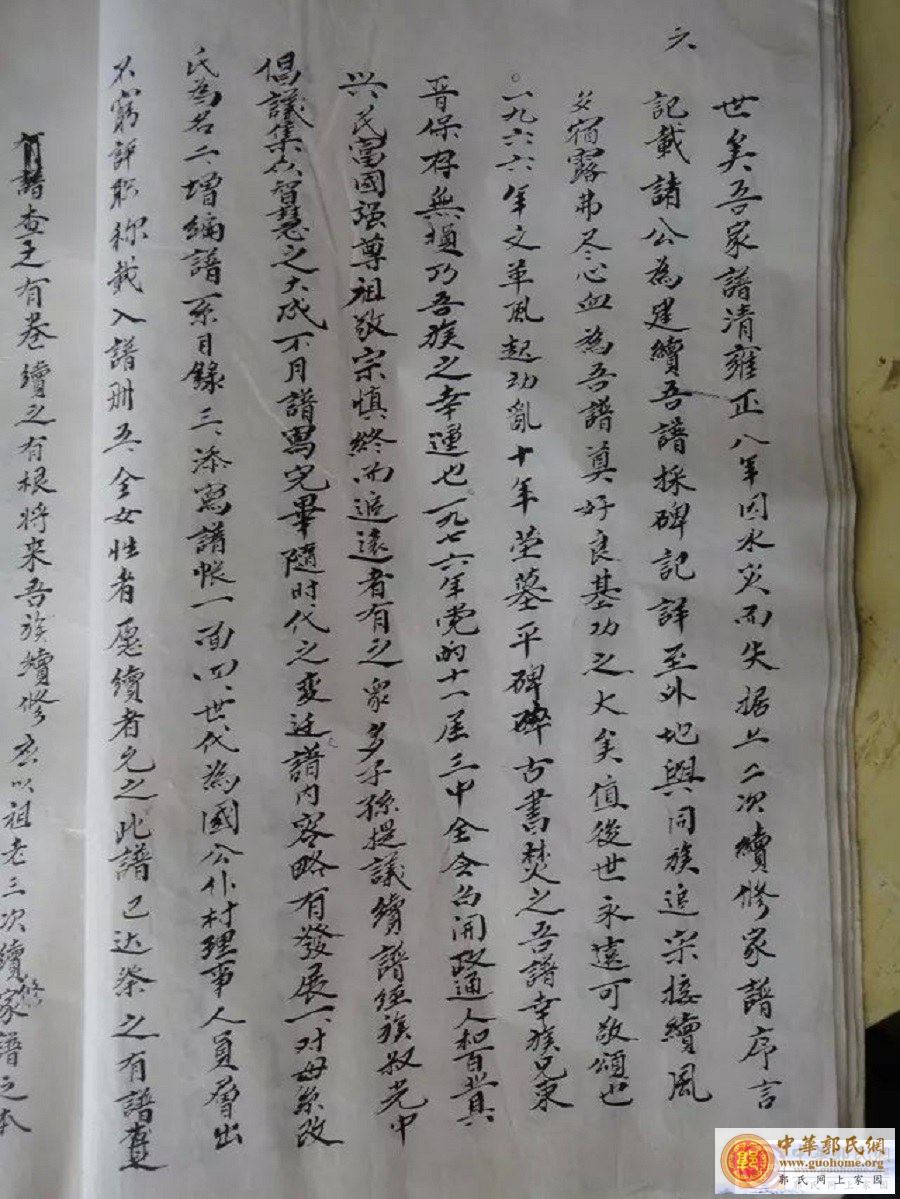 六
世矣吾家譜清雍正八年因水災而失据上二次續修家譜序言
記載請公為建續吾譜採碑記詳至外地與同族追宗接續風
夕宿露弗尽心血為吾譜奠好良基功之大矣值後世永遠可敬頌也
。一九六六年文革风起动亂十年茔墓平碑碎古書焚之吾譜幸族兄東
晋保存無損乃吾族之幸運也一九七六年党的十一屆三中全会召開政通人和百業具
兴民富國强尊祖敬宗慎終而追遠者有之眾多子孫提議續譜經族叔光中
倡議集众智慧之大成不月譜寫完畢隨时代之变迁譜内容略有發展一、对母系改
氏為名二、增编譜系目錄三、添寫譜帐一面四、世代為國公仆村理事人員層出
不窮評职称載入譜册五、全女性者愿續者允之此譜已达祭之有譜查
有譜查之有卷續之有根将来吾族續修应以祖老三次續修家譜之本
中華郭氏網
www.guohome.org
郭氏网上家园